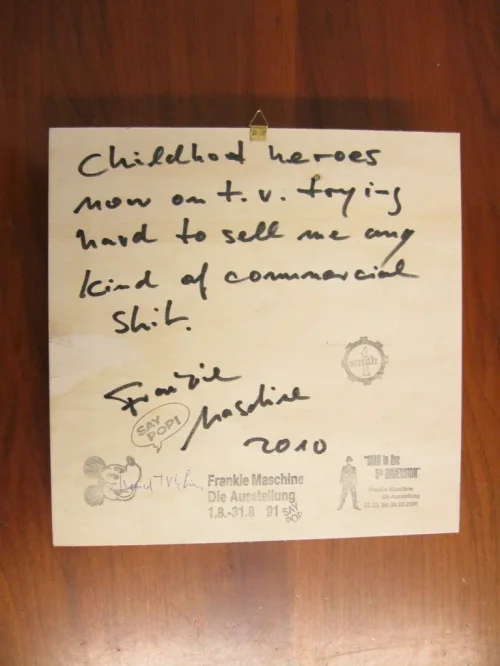 Childhod heroes
now on t.v. trying
hard to sell me any
kind of commercial
Shit.
smith
1
Frankie
Maschine
SAY
POP!
2010
Frankie Maschine
Die Ausstellung
1.8.-31.8 91
SAY
POP
"MAN in the
5th DIMENSION"
Frankie Maschine
die Ausstellung